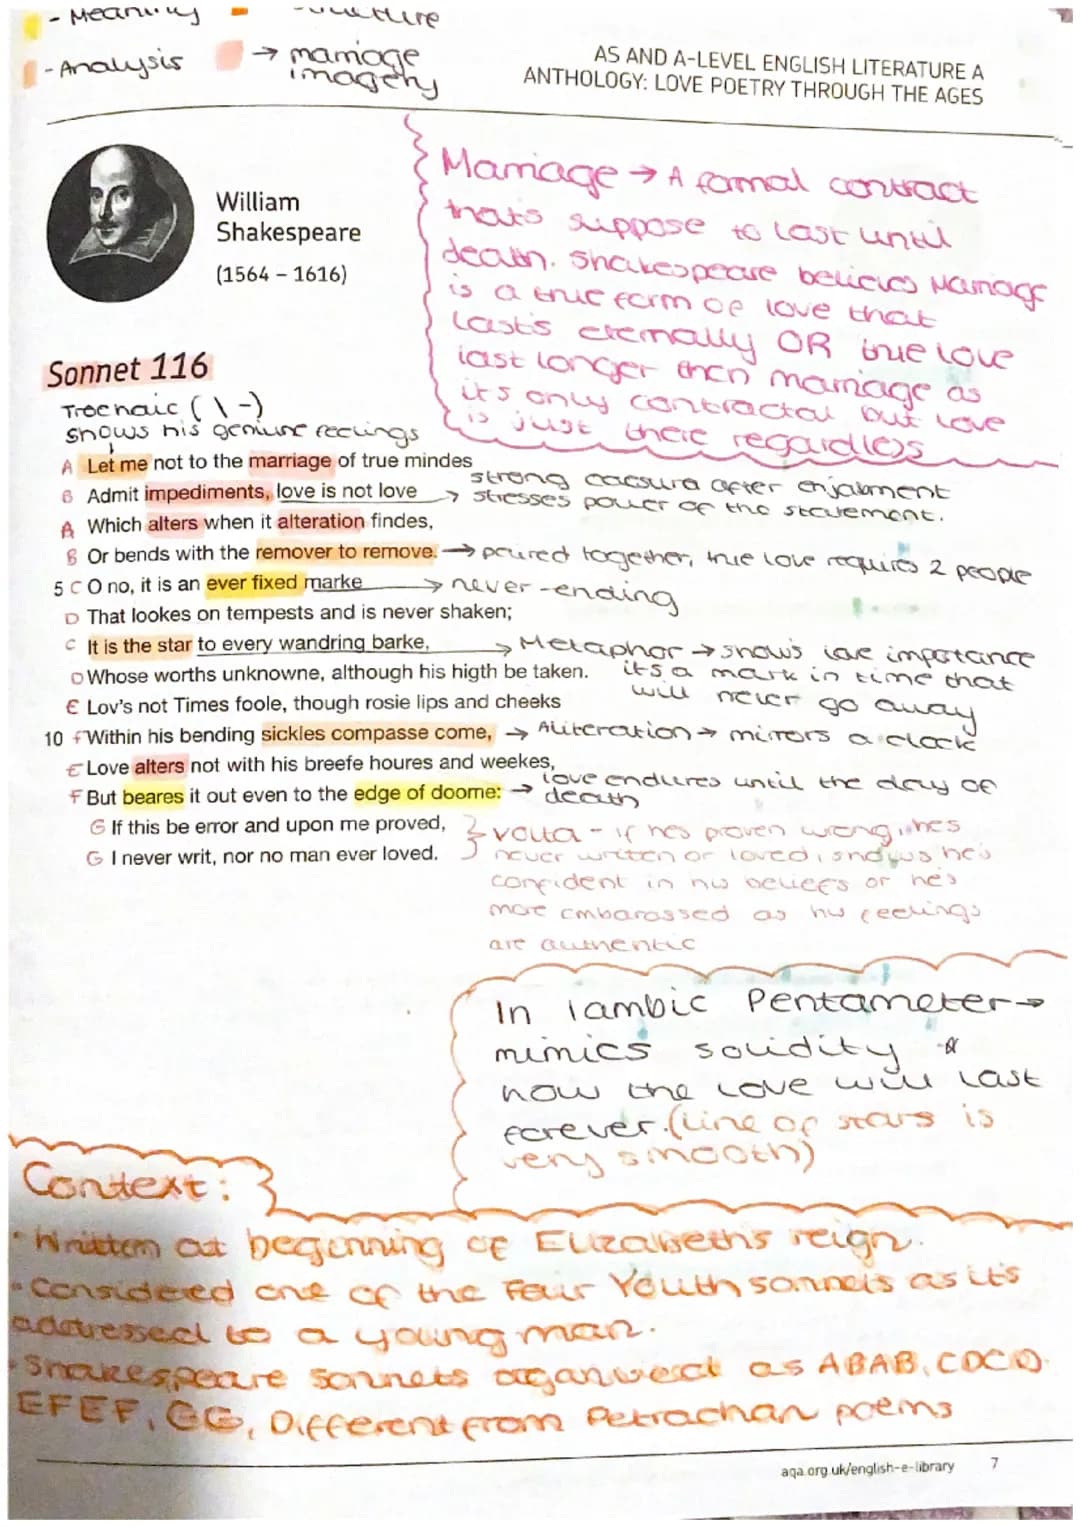 - Meaning
- Analysis
→ marriage
imagery
AS AND A-LEVEL ENGLISH LITERATURE A
ANTHOLOGY: LOVE POETRY THROUGH THE AGES
William
Shakespeare
(1564 – 1616)
Marriage → A formal contract
thats suppose to last until
death. Shakespeare believes Marriage
is a true form of love that
lasts eternally OR true love
last longer then marriage as
it's only contractal but love
is just there regardless
Sonnet 116
Trochaic ( \ - )
shows his geniune feelings
A Let me not to the marriage of true mindes
B Admit impediments, love is not love
→ strong caesura after enjabment
stresses power of the statement.
A Which alters when it alteration findes,
B Or bends with the remover to remove. → paired together, true love requires 2 people
5 C O no, it is an ever fixed marke → never-ending
D That lookes on tempests and is never shaken;
C It is the star to every wandring barke, → Metaphor → shows love importance
D Whose worths unknowne, although his higth be taken. it's a mark in time that
will never go away
E Lov's not Times foole, though rosie lips and cheeks
10 F Within his bending sickles compasse come, → Aliteration → mirrors a clock
E Love alters not with his breefe houres and weekes,
F But beares it out even to the edge of doome: → love endures until the day of
death
G If this be error and upon me proved,
G I never writ, nor no man ever loved.
volta - if hes proven wrong, hes
never written or loved, shows he's
confident in his beliefs or he's
more embarassed as his feelings
are authentic
In Iambic Pentameter →
mimics solidity &
how the love will last
forever. (Line of stars is
very smooth)
Context:
• Written at beginning of Elizabeth's reign.
• Considered one of the Fair Youth sonnets as it's
addressed to a young man.
• Shakespeare sonnets organised as ABAB, CDCD.
EFEF, GG, Different from Petrachan poems
aqa.org.uk/english-e-library 7